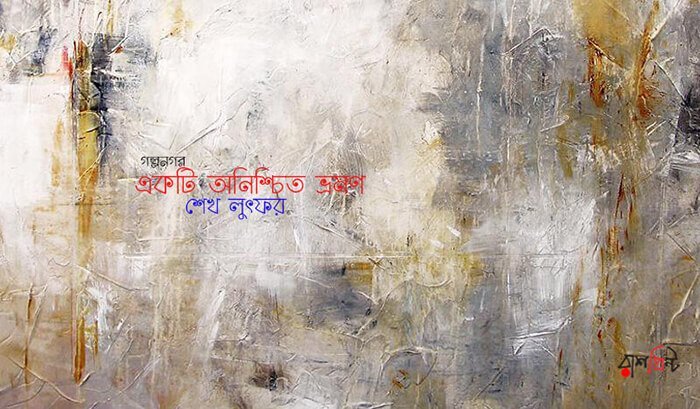 গল্পনগর
একটি অনিশ্চিত ভ্রমণ
শেখ লুৎফর
রাশপ্রিন্ট